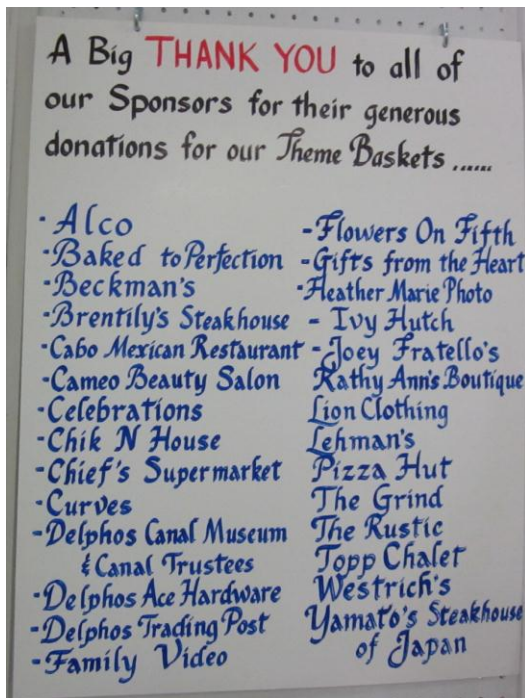 A Big THANK YOU to all of
our Sponsors for their generous
donations for our Theme Baskets ......
- Alco
- Baked to Perfection
- Beckman's
- Brentily's Steakhouse
- Cabo Mexican Restaurant
- Cameo Beauty Salon
- Celebrations
- Chik N House
- Chief's Supermarket
- Curves
- Delphos Canal Museum
& Canal Trustees
- Delphos Ace Hardware
- Delphos Trading Post
- Family Video
- Flowers On Fifth
- Gifts from the Heart
- Heather Marie Photo
- Ivy Hutch
- Joey Fratello's
Kathy Ann's Boutique
Lion Clothing
Lehman's
Pizza Hut
The Grind
The Rustic
Topp Chalet
Westrich's
Yamato's Steakhouse
of Japan